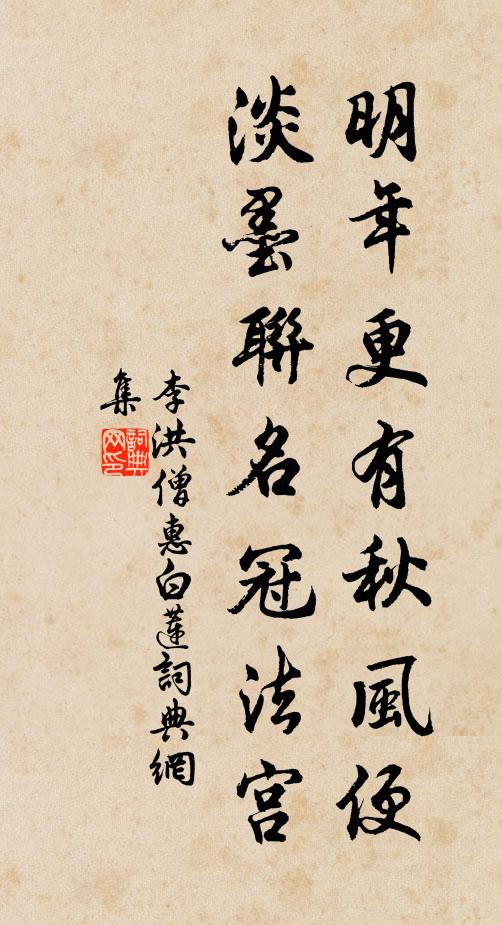 明年更有秋風便
淡墨聯名冠法宮
李洪僧惠白蓮詞典網
集
詞典网印